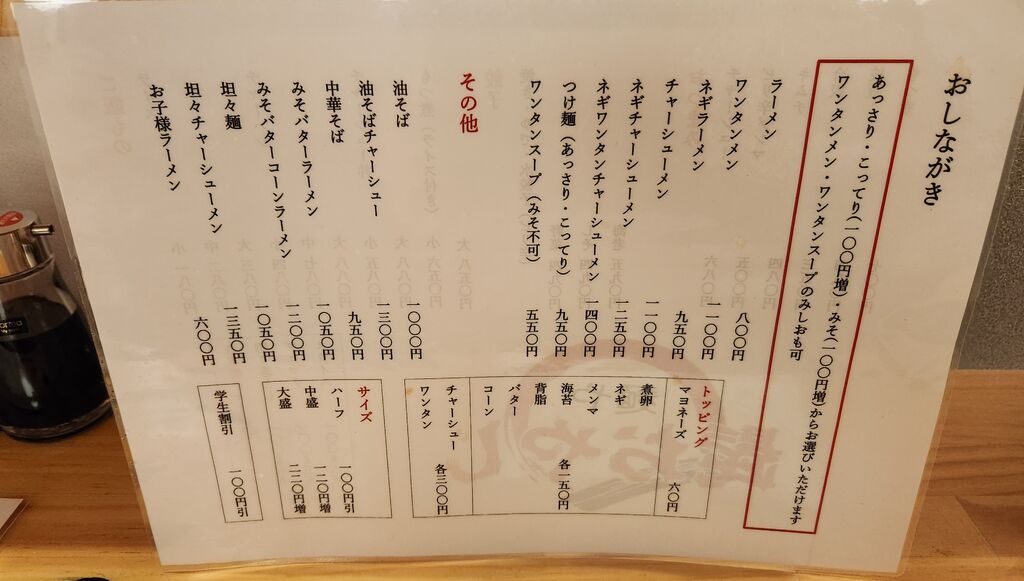 おしながき
あっさり・こってり(一〇〇円増)・みそ(一〇〇円増)からお選びいただけます
ワンタンメン・ワンタンスープのみしおも可
ラーメン 八〇〇円
ワンタンメン 一一〇〇円
ネギラーメン 九五〇円
チャーシューメン 一一〇〇円
ネギチャーシューメン 一二五〇円
ネギワンタンチャーシューメン 一四〇〇円
つけ麺(あっさり・こってり) 九五〇円
ワンタンスープ(みそ不可) 五五〇円
その他
油そば 一〇〇〇円
油そばチャーシュー 一三〇〇円
中華そば 九五〇円
みそバターラーメン 一〇五〇円
みそバターコーンラーメン 一二〇〇円
坦々麺 一〇五〇円
坦々チャーシューメン 一三五〇円
お子様ラーメン 六〇〇円
トッピング
マヨネーズ 六〇円
煮卵
ネギ
メンマ
海苔 各一五〇円
背脂
バター
コーン
チャーシュー 各三〇〇円
ワンタン
サイズ
ハーフ 一〇〇円引
中盛 一二〇円増
大盛 二二〇円増
学生割引 一〇〇円引